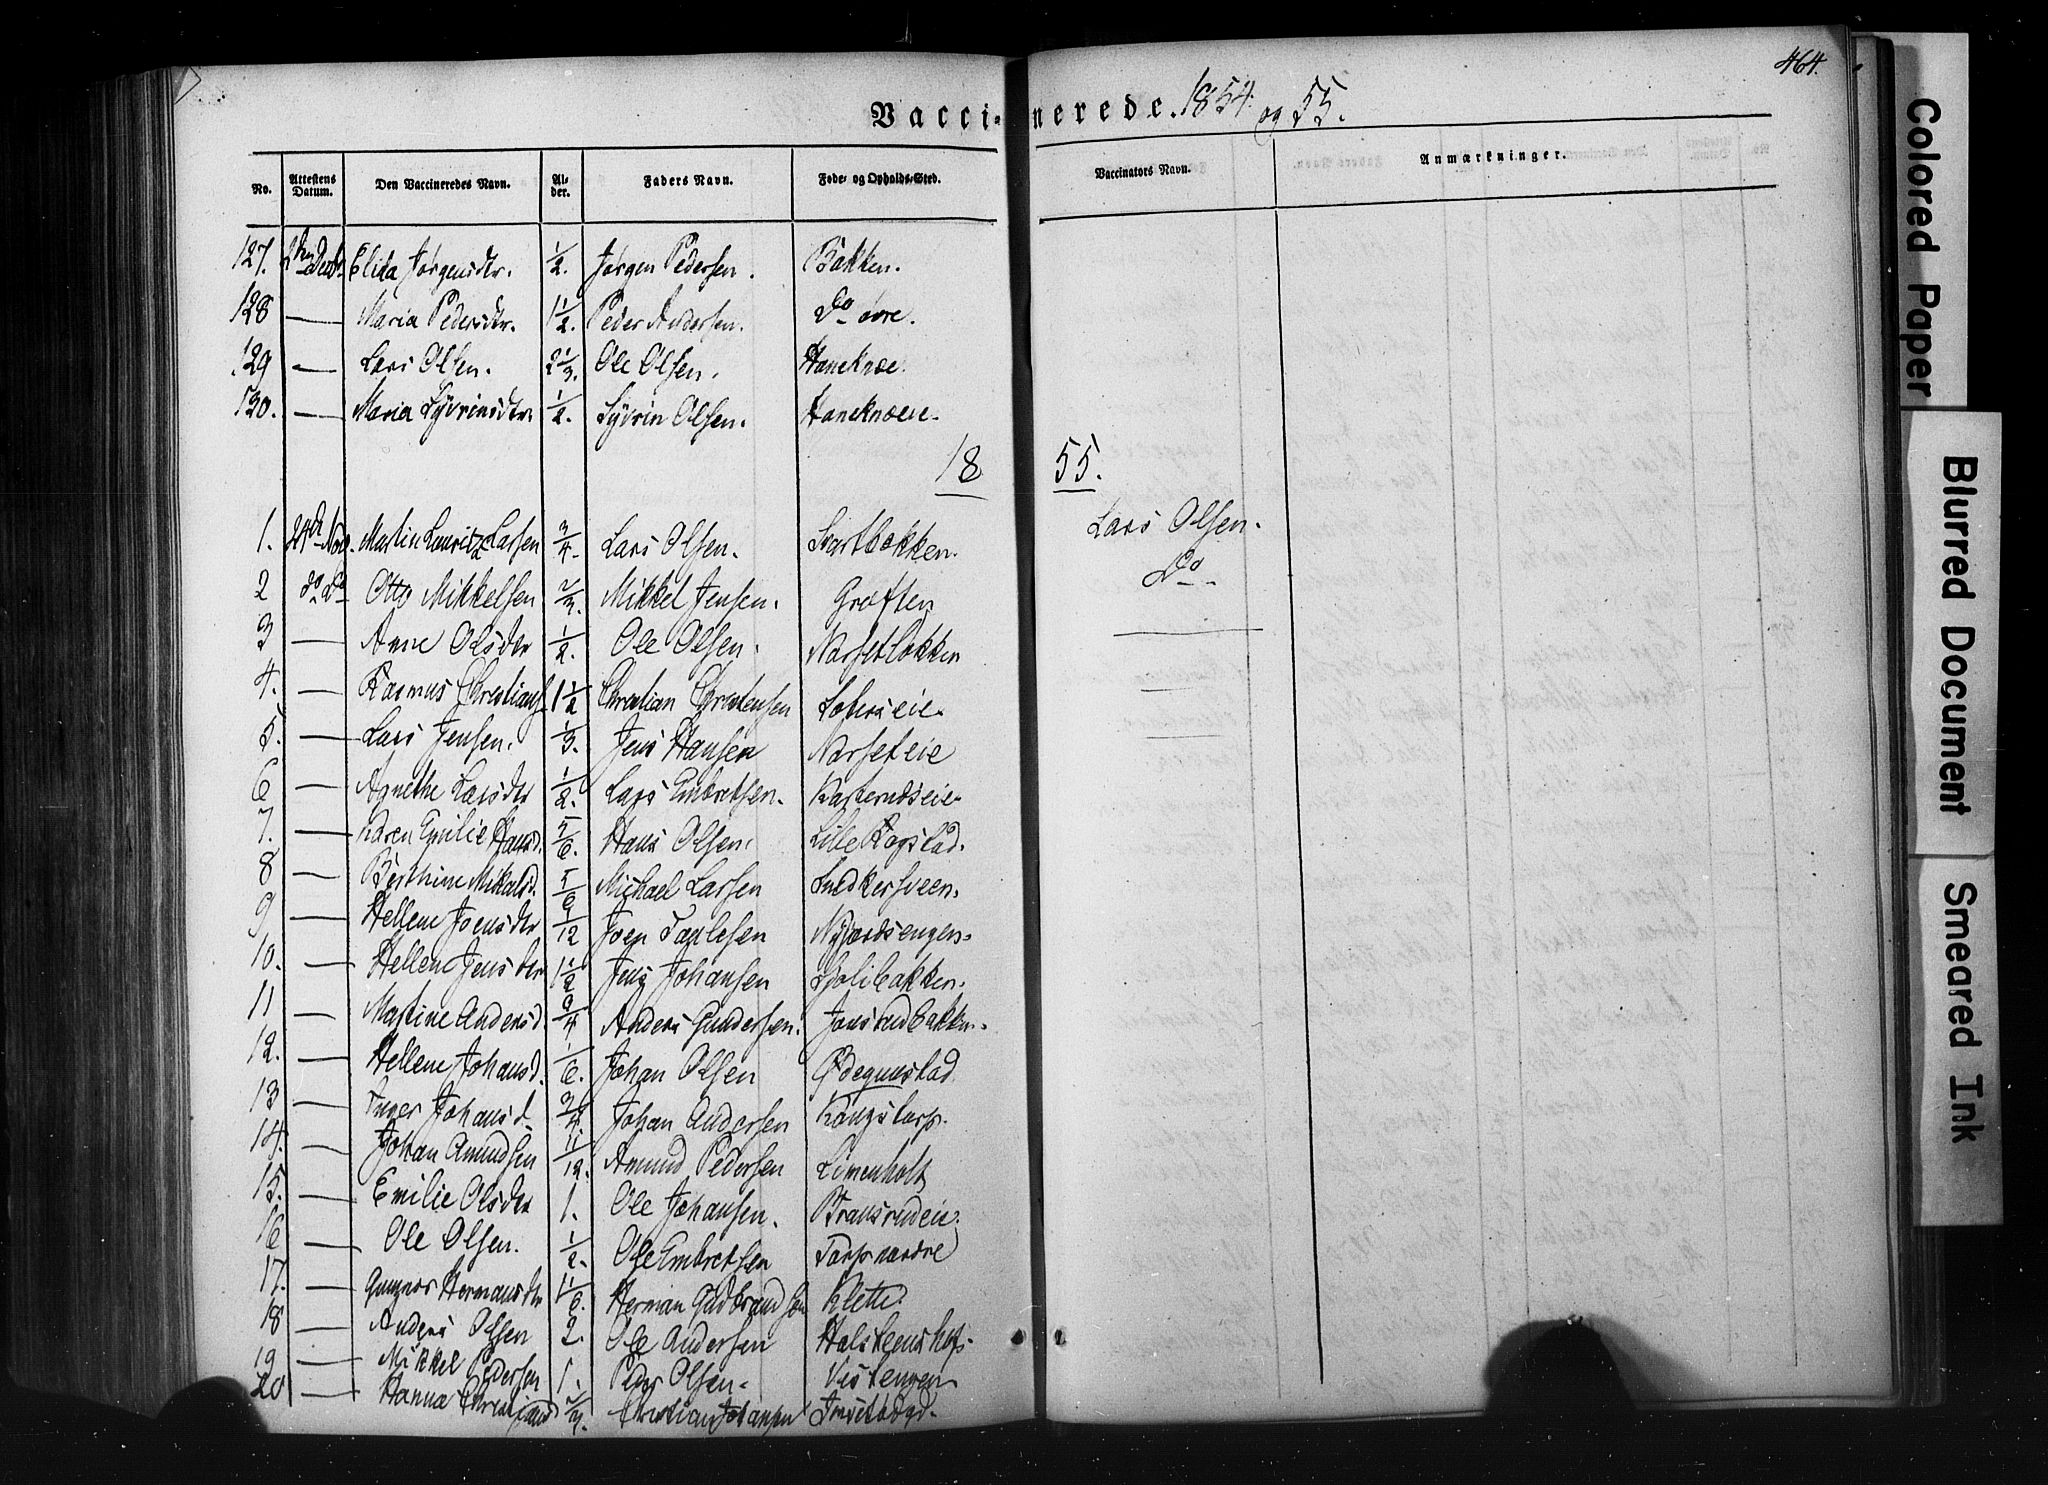 464.
Vaccinerede. 1854 og 55.
No. Attestens Datum. Den Vaccineredes Navn. Alder. Faders Navn. Føde- og Opholds-Sted. Vaccinators Navn. Anmærkninger.
127. Elida Jørgensdtr. 1/2. Jørgen Pedersen. Bakken.
128 — Maria Pedersdtr. 1 1/2. Peder Andersen. Do øvre.
129 — Lars Olsen. 2 1/3. Ole Olsen. Haneknæ.
130. — Maria Syvrinsdtr. 1/2. Syvrin Olsen. Haneknæeie.
1855.
1. 24de Nov. Martin Lauritz Larsen 3/4. Lars Olsen. Svartbakken. Lars Olsen.
2 do Do Otto Mikkelsen 2/3. Mikkel Jensen. Grøften Do
3 — Anne Olsdtr 1/2. Ole Olsen. Narsetbakken —
4. — Rasmus Christians 1 1/2 Christian Christensen —
5. — Lars Jensen. 1/3. Jens Hansen Narseteie —
6 — Agnethe Larsdtr 1/2. Lars Embretsen.
7. — Karen Emilie Hansd. 5/6. Hans Olsen. Lille Rogstad.
8 — Berthine Mikalsd. 5/6 Michael Larsen Snedkersveen.
9 — Hellene Joensdtr 9/12 Joen Paulesen Nygardsengen.
10. — Hellene Jensdtr 1 1/2 Jens Johansen
11 — Martine Andersd 3/4 Anders Gundersen. Jonsrudbakken.
12. — Hellene Johansd. 1/6. Johan Olsen Ødegaustad
13 — Inger Johansd. 3/4 Johan Andersen
14. — Johan Amundsen 11/12. Amund Pedersen Limenholt
15. — Emilie Olsdtr 1. Ole Johansen. Bransrudeie.
16 — Ole Olsen. 1/2. Ole Embretsen Torp nordre
17. — Hermansdtr 1 1/6. Herman Gudbrandsen Klette.
18 — Anders Olsen 2. Ole Andersen Halsteenshof.
19 — Mikkel Pedersen 1. Peder Olsen. Vestengen
20 — Hanna Christiansd 2/3. Christian Johansen
Colored Paper
Blurred Document
Smeared Ink